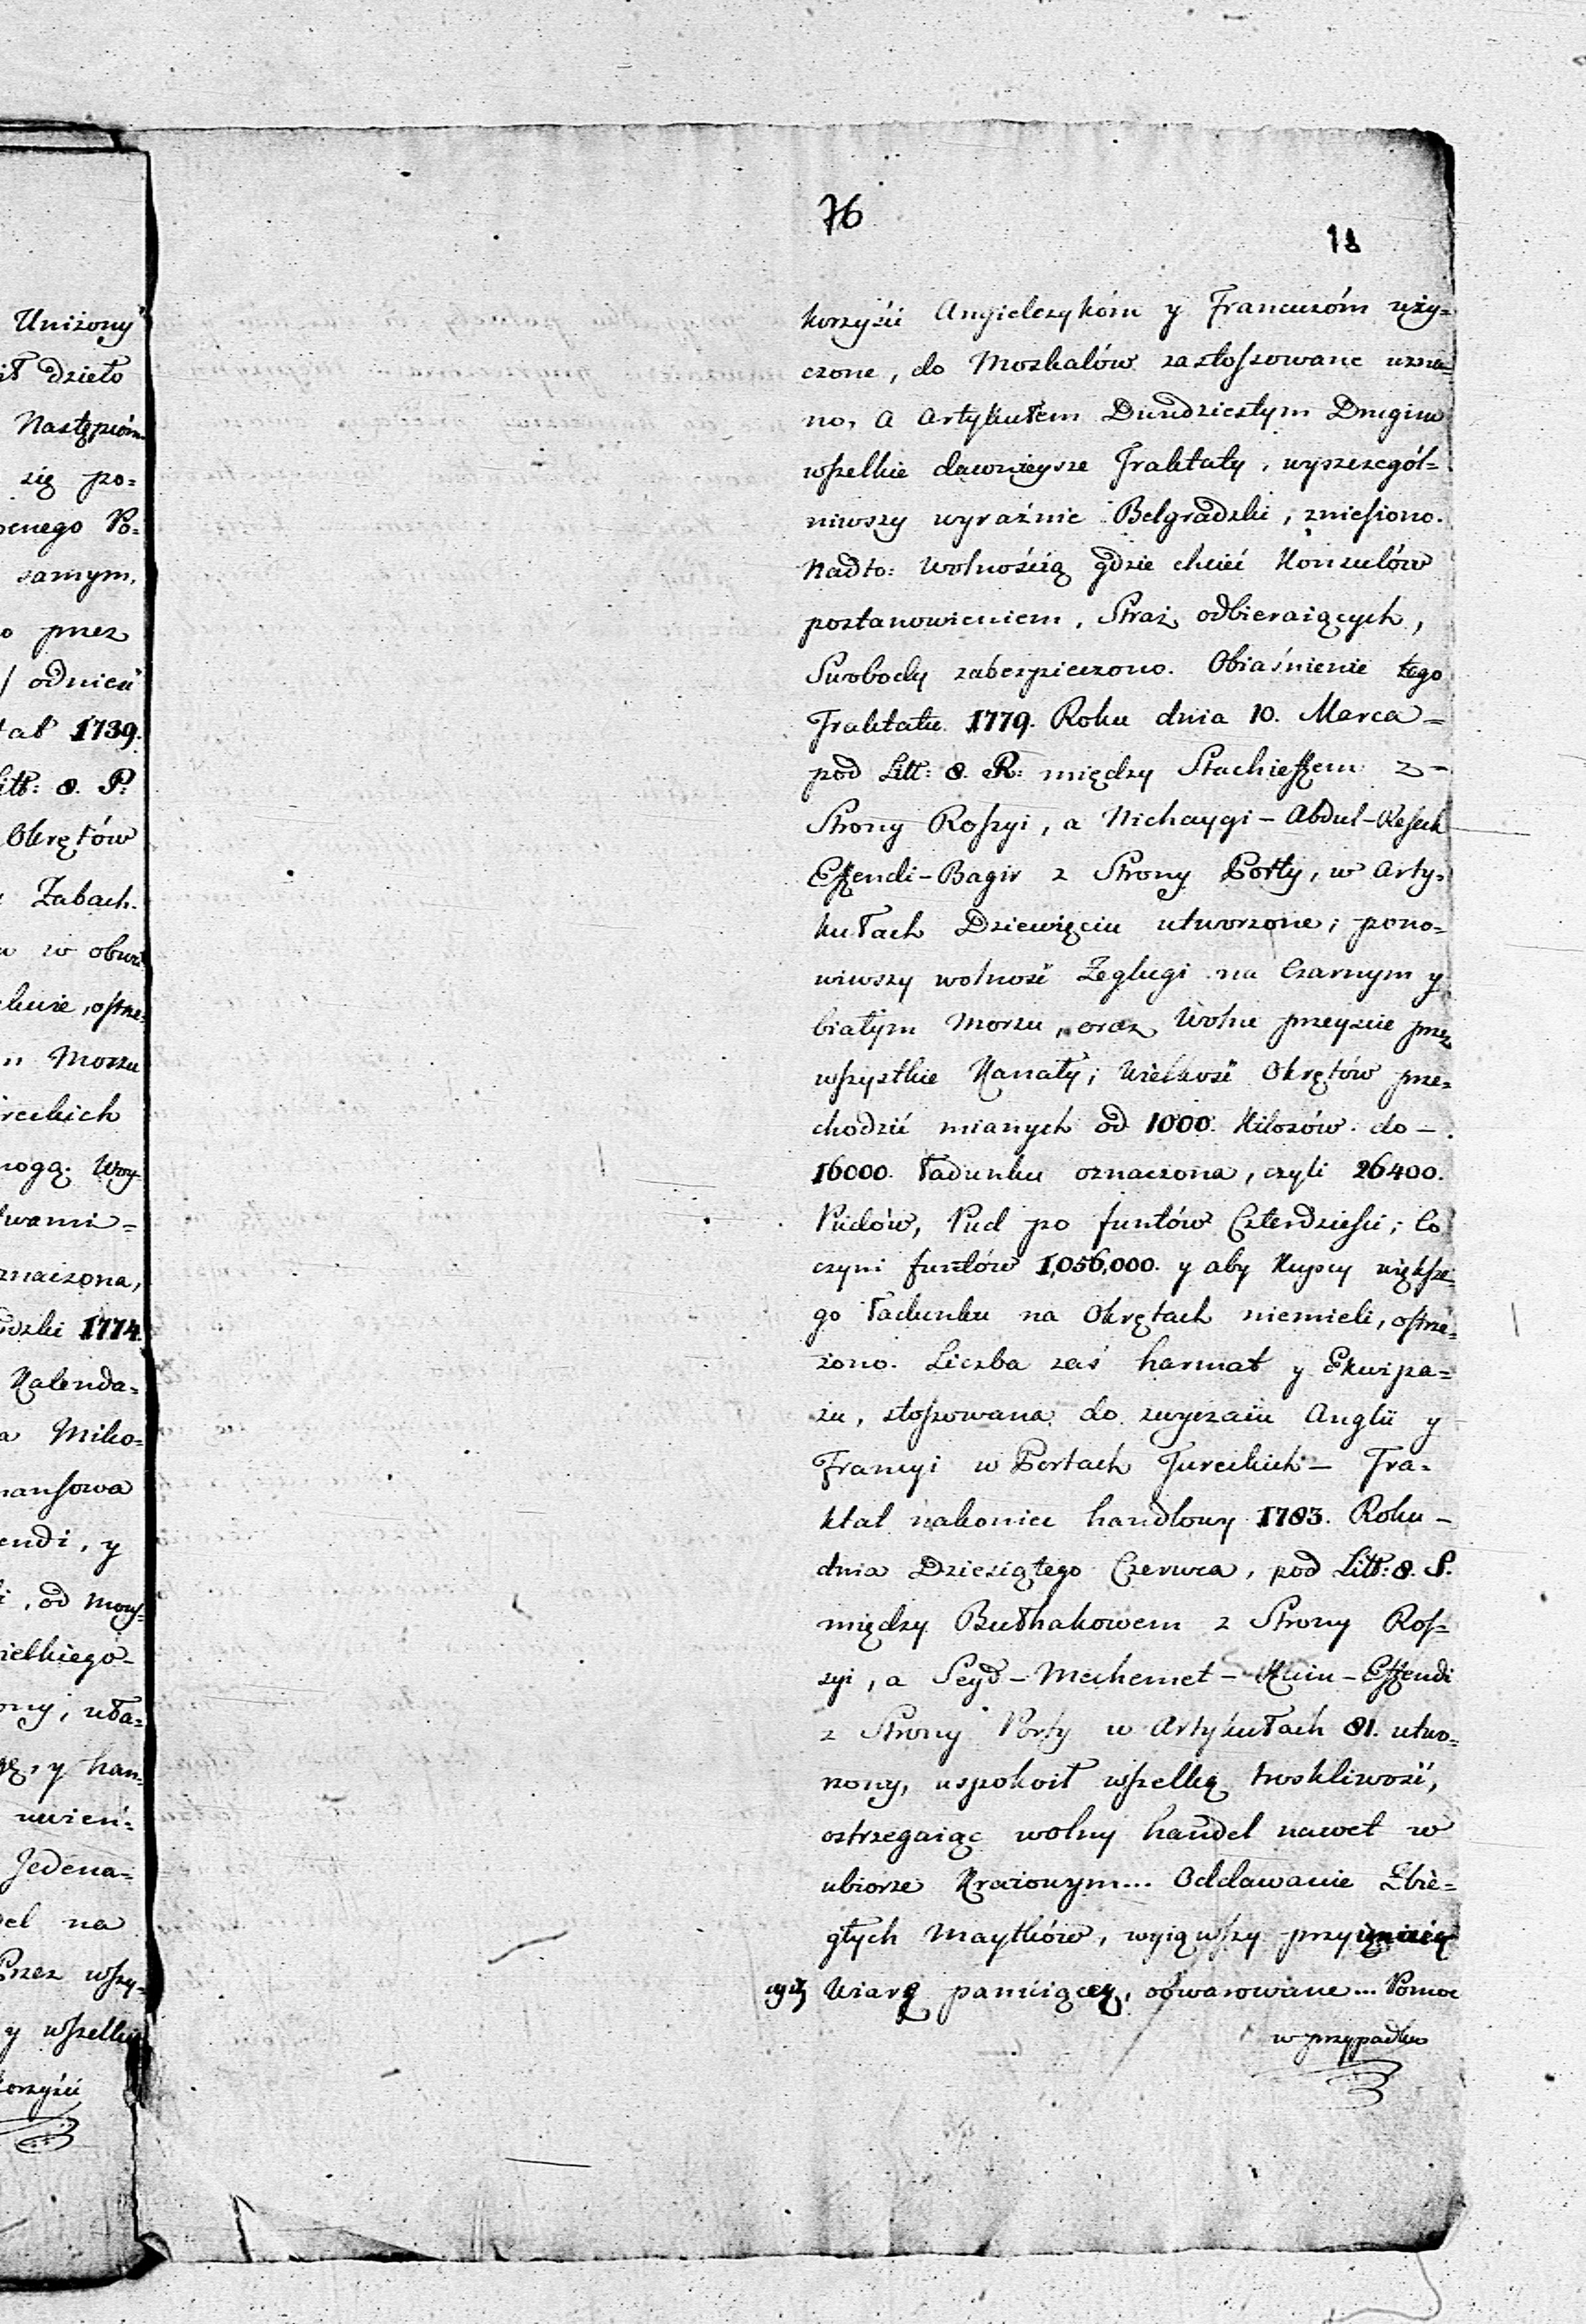 Uniżony
ił dzieło
Nastąpiém
się po=
ocnego Po=
samym,
o przez
odnieś
tat 1739.
Litt: 8. P.
Okrętów
Zabach.
w obwa
ostrze=
m Morzu
ureckich
mogą. Woy
twami=
znaczona,
dzki 1774.
Kalenda=
a Miko=
mansowa
endi, y
i, od Mory=
ielkiego-
ony; uła=
gę, y han=
uwień=
Jedena=
del na
Przez wszy=
y wszelkie
korzyści
76
18
korzyści Angielczykóm y Francuzóm uży=
czone, do Moskalów zastoszowane uzna=
no, a Artykułem Dwudziestym Drugim
wszelkie dawnieysze Traktaty, wyszczegól=
niwszy wyraźnie Belgradzki, zniesiono.
Nadto: Wolnością gdzie chcieć Konsulów
postanowieniem, Straż odbieraiących,
Swobody zabezpieczono. Obiaśnienie tego
Traktatu 1779. Roku dnia 10. Marca=
pod Litt: 8. R: między Stachieffem z-
Strony Rossyi, a Nichaygi-Abdul-Resuh
Effendi-Bagir z Strony Porty, w Arty=
kułach Dziewięciu utworzone; pono=
wiwszy wolność Żeglugi na Czarnym y
białym Morzu, oraz Wolne przeyście prez
wszystkie Kanały; Wielkość Okrętów prze=
chodzić mianych od 1000. Kilozów do-.
16000. Ładunku oznaczona, czyli 26400.
Pudów, Pud po funtów Czterdzieści; Co
czyni funtów 1,056,000. y aby Kupcy większe=
go Ładunku na Okrętach niemieli, ostrze=
żono. Liczba zaś harmat y Ekwipa=
żu, stosowana do zwyczaiu Anglii y
Francyi w Portach Tureckich- Tra=
ktat nakoniec handlowy 1783. Roku-
dnia Dziesiątego Czerwca, pod Litt: 8. S.
między Bułhakowem z Strony Ros=
syi, a Seyd-Mechemet-Haiu-Effendi
z Strony Porty w Artykułach 81. utwo=
rzony, uspokoił wszelką troskliwość,
ostrzegaiąc wolny handel nawet w
ubiorze Kraiowym... Oddawanie Zbie=
głych Maytków, wyiąwszy
Wiarę Panuiącey, obwarowane... Pomoc
w przypadku